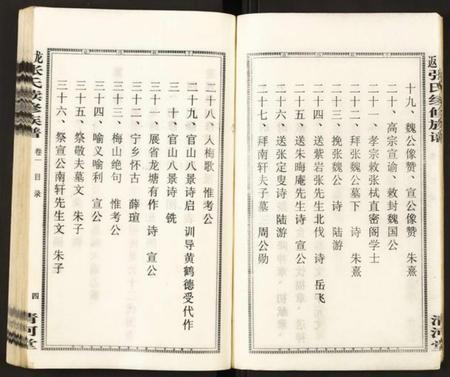 张氏续修族谱
十九、魏公像赞、宣公像赞 朱熹
二十、高宗宣谕、敕封魏国公
二十一、孝宗敕张栻直密阁学士
二十二、拜张魏公墓下 诗 朱熹
二十三、挽张魏公 诗 陆游
二十四、送紫岩张先生北伐 诗 岳飞
二十五、送朱晦庵先生诗 宣公
二十六、送张定叟诗 陆游
二十七、拜南轩夫子墓 周公勋
清河堂
二十八、入梅歌 惟考公
二十九、官山八景诗启 训导黄鹤德受代作
三十、官山八景诗 铣
三十一、展省龙塘有作 诗 宣公
三十二、宁乡怀古 薛瑄
三十三、梅山绝句 惟考公
三十四、喻义喻利 宣公
三十五、祭敬夫墓文 朱子
三十六、祭宣公南轩先生文 朱子
张氏续修族谱
卷一 目录
四
清河堂